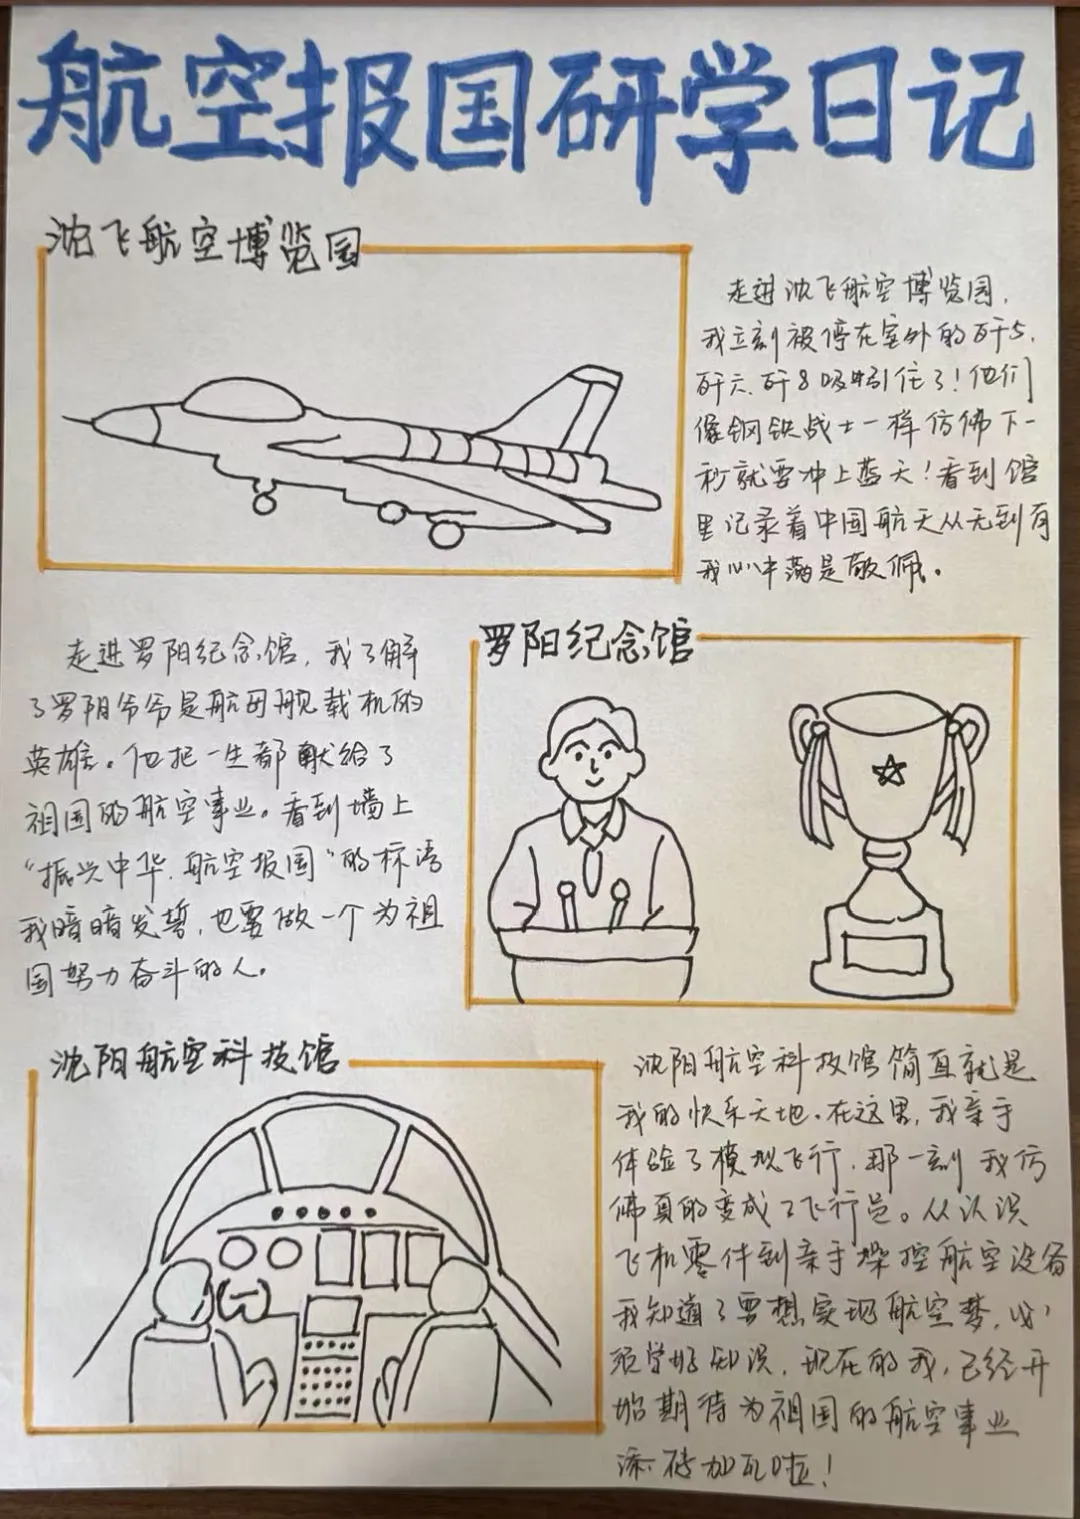 航空报国研学日记
沈飞航空博览园
走进沈飞航空博览园,
我立刻被停在室外的歼5.
歼六.歼8吸引住了!他们
像钢铁战士一样仿佛下一
秒就要冲上蓝天!看到馆
里记录着中国航天从无到有
我心中满是敬佩。
罗阳纪念馆
走进罗阳纪念馆,我了解
了罗阳爷爷是航母舰载机的
英雄。他把一生都献给了
祖国的航空事业。看到墙上
“振兴中华.航空报国”的标语
我暗暗发誓,也要做一个为祖
国努力奋斗的人。
沈阳航空科技馆
沈阳航空科技馆简直就是
我的快乐天地.在这里,我亲手
体验了模拟飞行.那一刻我仿
佛真的变成了飞行员。从认识
飞机零件到亲手操控航空设备
我知道了要想实现航空梦,必
须学好知识.现在的我,已经开
始期待为祖国的航空事业
添砖加瓦啦!